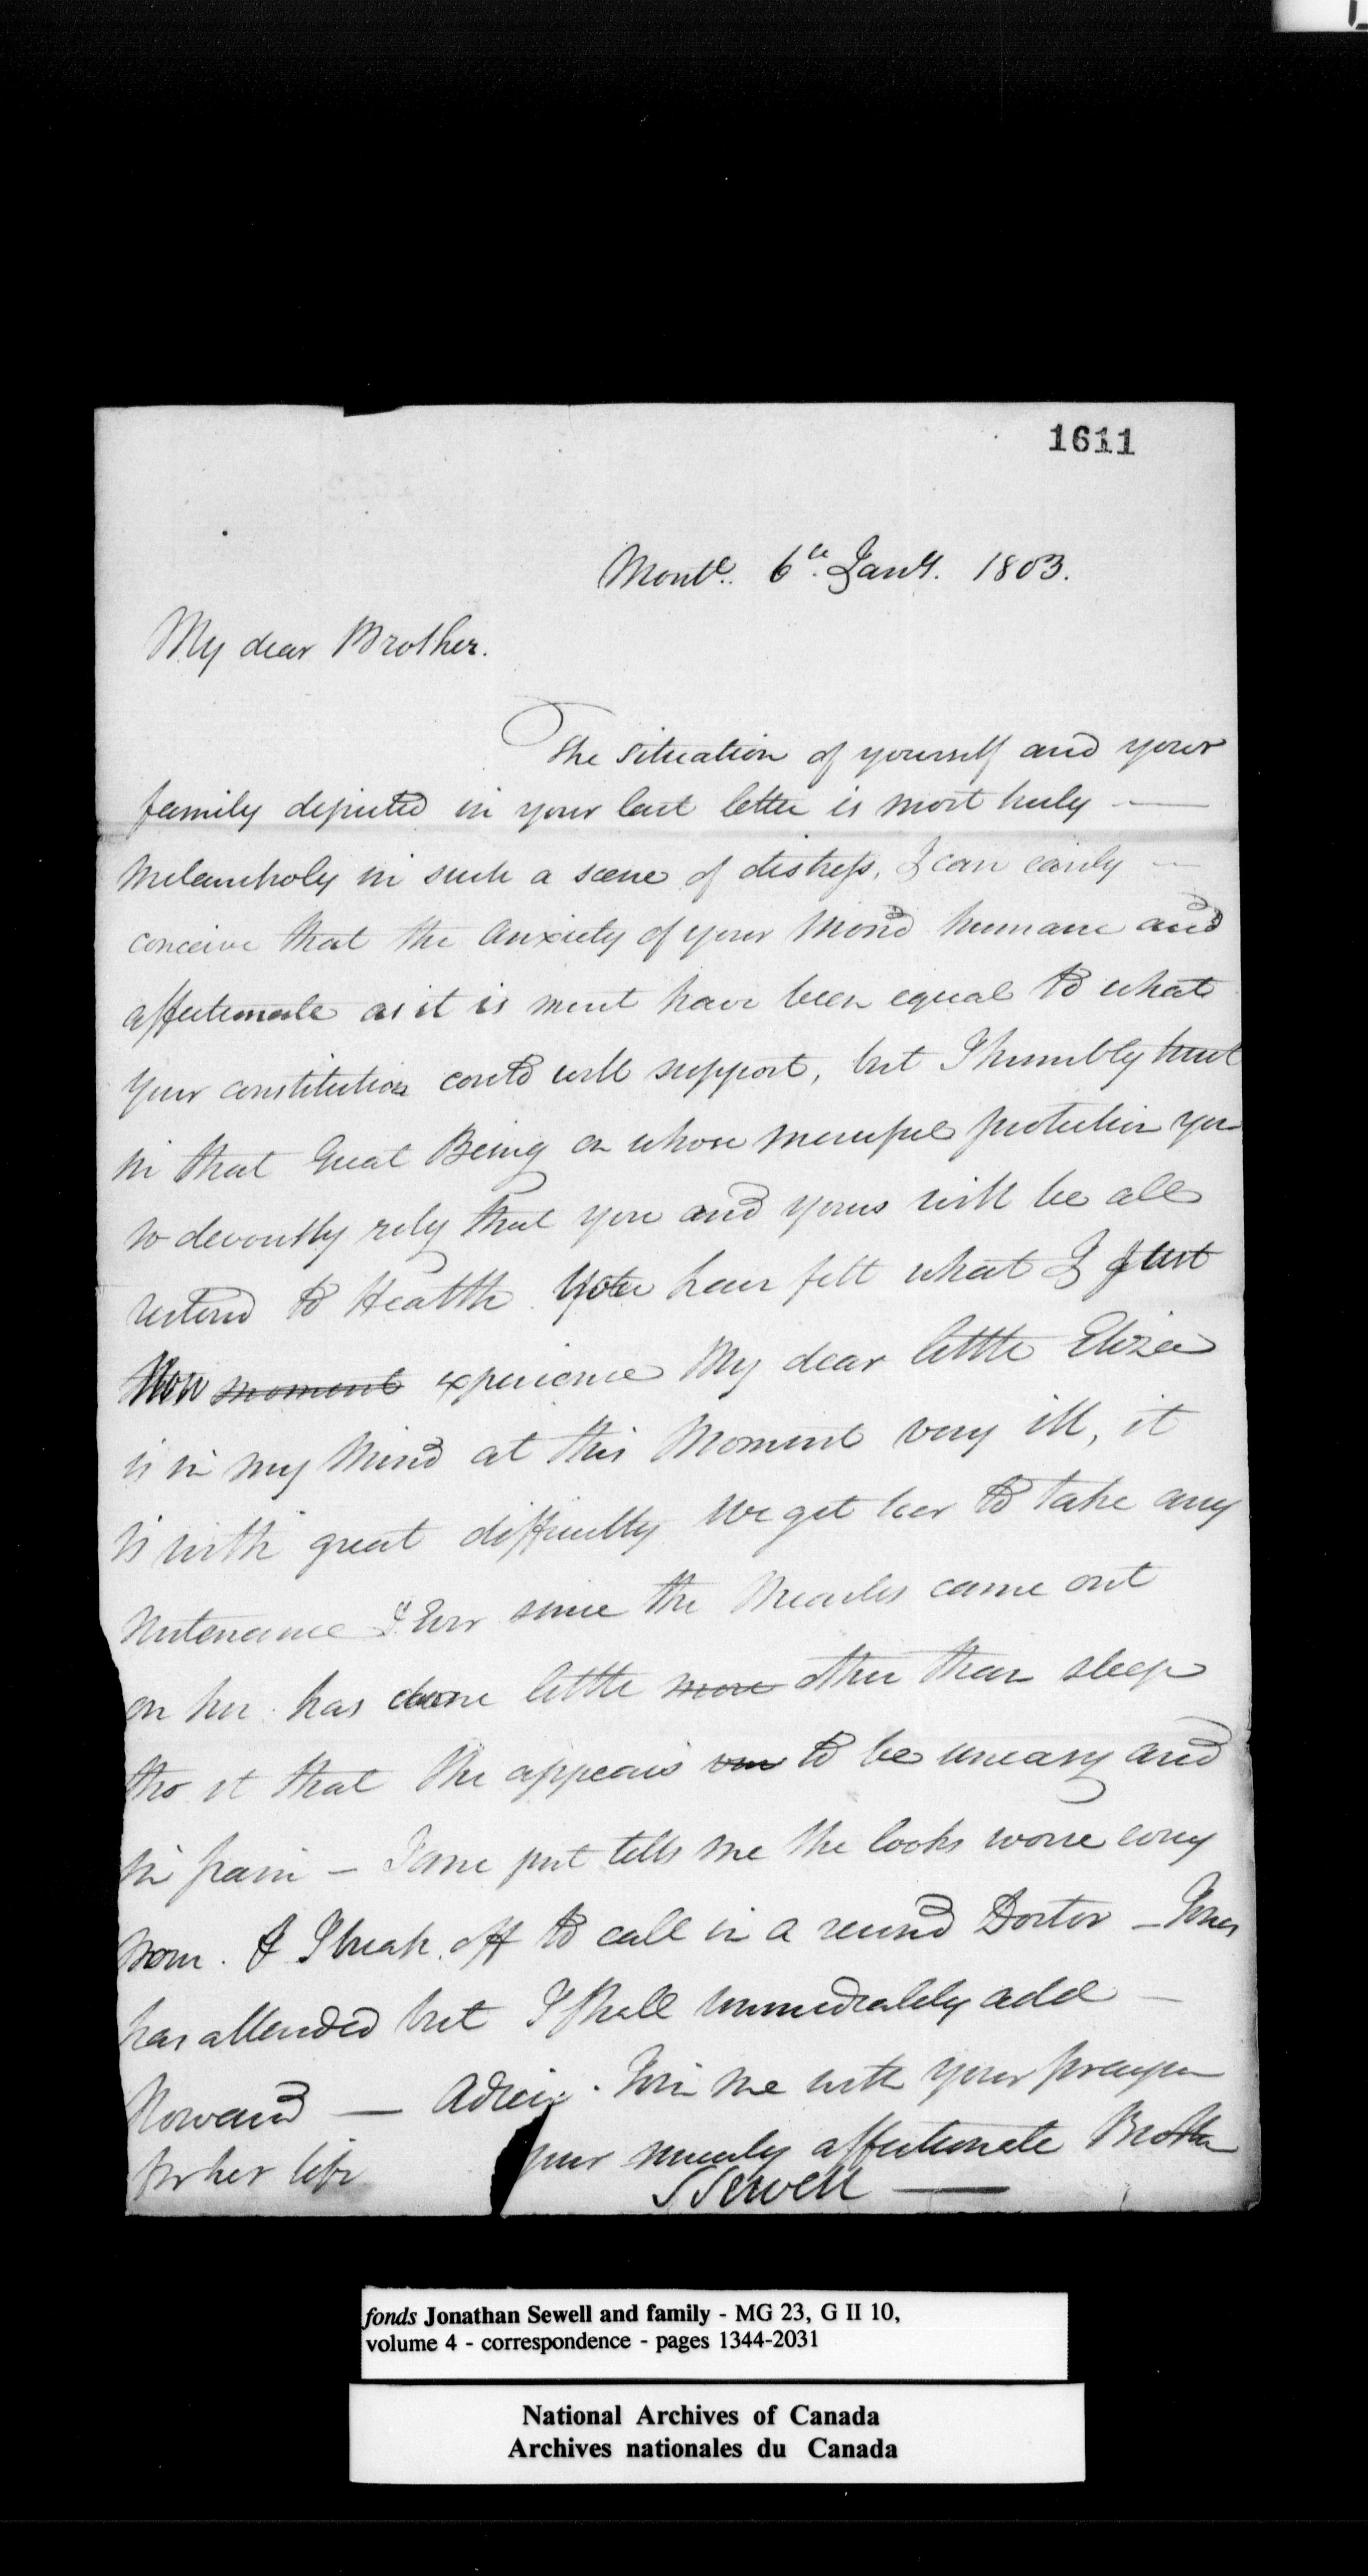 1611
Montl. 6th. Jany. 1803.
My dear Brother.
The situation of yourself and your
family depicted in your last letter is most truly —
Melancholy in such a scene of distress, I can easily —
conceive that the Anxiety of your Mind humane and
affectionate as it is must have been equal to what
your constitution could well support, but I humbly trust
in that Great Being on whose merciful protection you
so devoutly rely that you and yours will be all
restored to Health. You have felt what I just
Now moment experience My dear little Eliza
is in my Mind at this Moment very ill, it
is with great difficulty we get her to take any
sustenance & Ever since the Measles came out
on her has done little more other than sleep
tho it that She appears to be uneasy and
in pain — Jane just tells me She looks worse every
hour. I break off to call in a second Doctor — Jones
has attended but I shall immediately add —
Noward — Adieu. Join me with your prayers
for her life
your sincerely affectionate Brother
S Sewell —
fonds Jonathan Sewell and family - MG 23, G II 10,
volume 4 - correspondence - pages 1344-2031
National Archives of Canada
Archives nationales du Canada